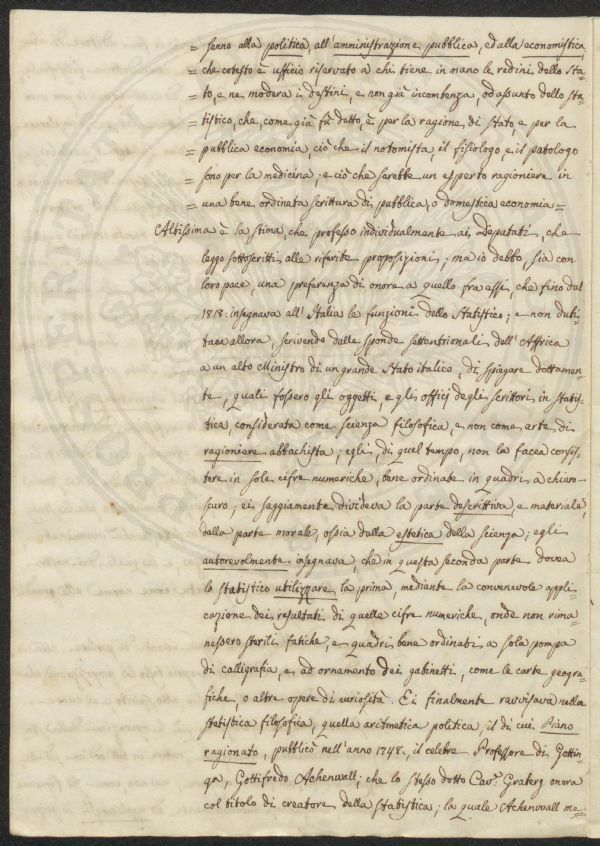 = sanno alla politica, all'amministrazione pubblica, ed alla economistica,
= che cotesto è ufficio riservato a chi tiene in mano le redini dello Sta=
= to, e ne modera i destini, e non già incombenza, od assunto dello sta=
= tistico, che, come già fù detto, è per la ragione di Stato, e per la
= pubblica economia, ciò che il notomista, il fisiologo, e il patologo
= sono per la medicina; e ciò che sarebbe un esperto ragioniere in
= una bene ordinata scrittura di pubblica, o domestica economia =
Altissima è la stima, che professo individualmente ai Deputati, che
leggo sottoscritti alle riferite proposizioni; ma io debbo, sia con
loro pace, una preferenza di onore a quello fra essi, che fino dal
1818. insegnava all'Italia le funzioni dello Statistico; e non dubi=
tava allora, scrivendo dalle sponde settentrionali dell'Affrica
a un alto Ministro di un grande Stato italico, di spiegare dottamen=
te, quali fossero gli oggetti, e gli officj degli scrittori in statis=
tica considerata come scienza filosofica, e non come arte di
ragioniere abbachista; egli, di quel tempo, non la facea consis=
tere in sole cifre numeriche, bene ordinate in quadri a chiaro=
scuro; ei saggiamente divideva la parte descrittiva, e materiale,
dalla parte morale, ossia dalla estetica della scienza; egli
autorevolmente insegnava, che in questa seconda parte dovea
lo statistico utilizzare la prima, mediante la convenevole appli=
cazione dei resultati di quelle cifre numeriche, onde non rima=
nessero sterili fatiche, e quadri bene ordinati a sola pompa
di calligrafia, e ad ornamento dei gabinetti, come le carte geogra=
fiche, o altre opere di curiosità. Ei finalmente ravvisava nella
statistica filosofica, quella aritmetica politica, il di cui Piano
ragionato, pubblicò nell'anno 1748. il celebre Professore di Gottin=
ga, Gottifredo Achenwall; che lo stesso dotto Cav.r Graberg onora
col titolo di creatore della Statistica; la quale Achenwall me=